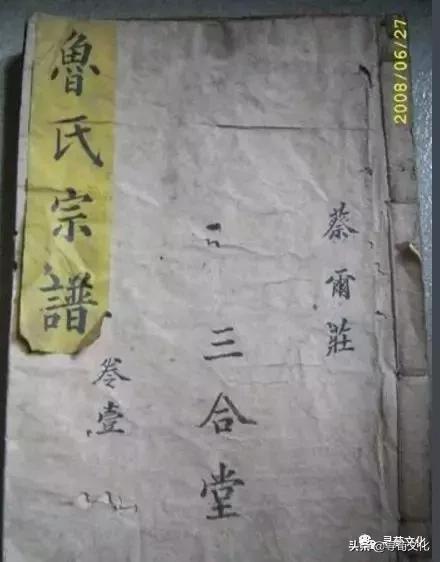 蔡爾莊
三合堂
魯氏宗譜
卷壹
2008/06/27
寻荀文化
头条@寻荀文化